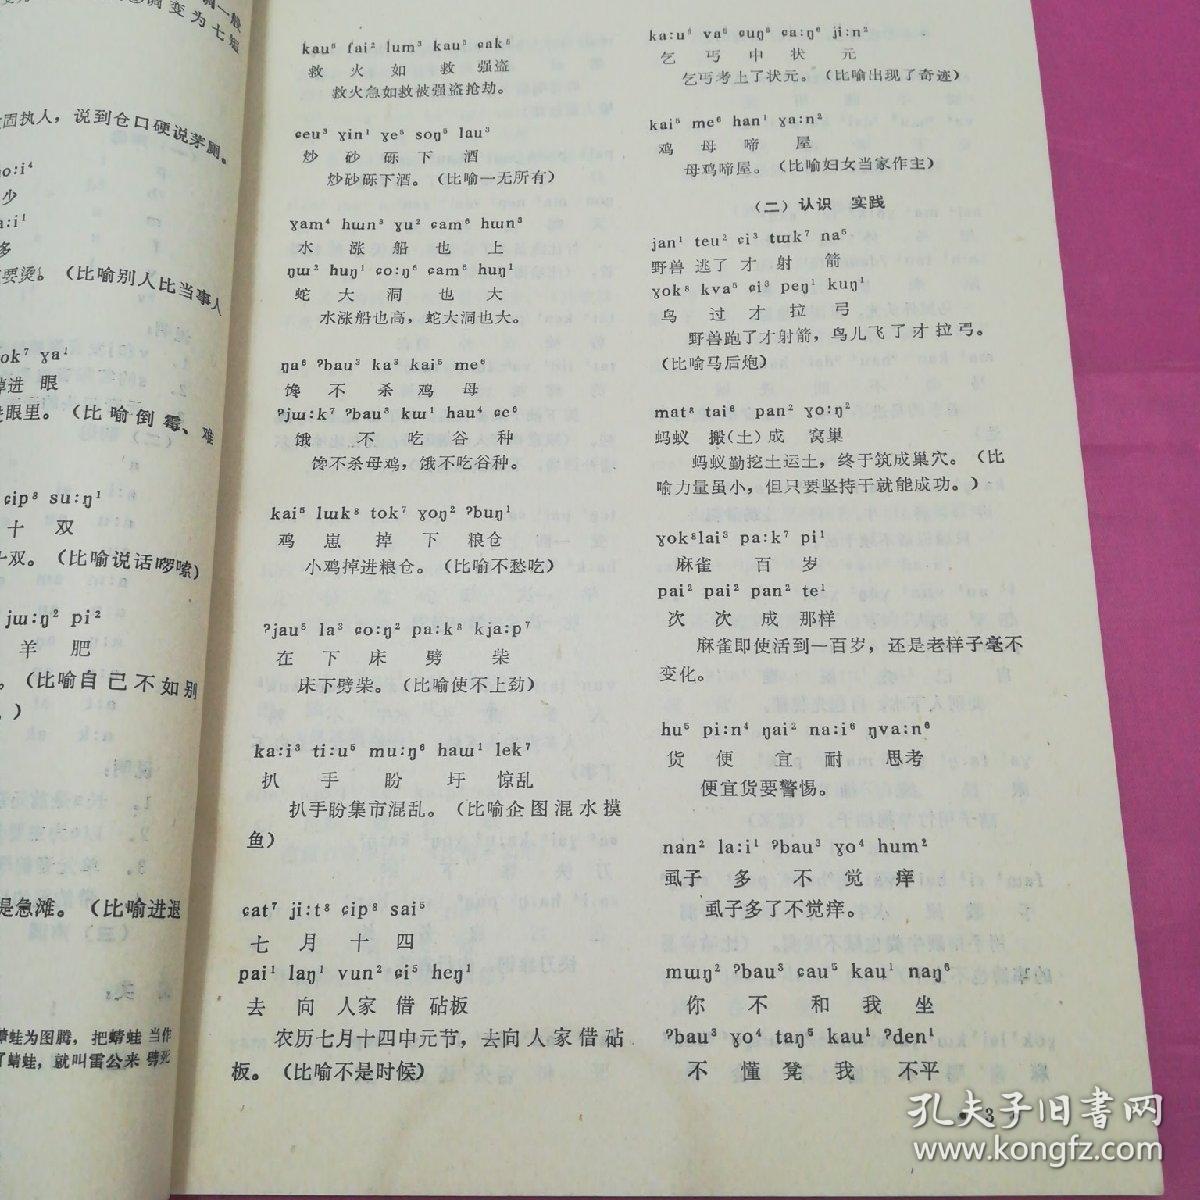 面执人，说到仓口硬说茅厕。
少
多
要烫。（比喻别人比当事人
掉进 眼
进眼里。（比喻倒霉、难
ɕip⁸ su:ŋ¹
十 双
十双。（比喻说话啰嗦）
jɯ:ŋ² pi²
羊 肥
。（比喻自己不如别
。）
是急滩。（比喻进退
蛙为图腾，把蜻蛙当作
了蜻蛙，就叫雷公来 劈死
kau⁵ fai² lum³ kau⁵ ɕak⁸
救 火 如 救 强盗
救火急如救被强盗抢劫。
ɕeu³ ɣin¹ ɣe⁵ soŋ⁵ lau³
炒 砂 砾 下 酒
炒砂砾下酒。（比喻一无所有）
ɣam⁴ hɯn³ ɣu² ɕam⁶ hɯn³
水 涨 船 也 上
ŋɯ² huŋ¹ ɕo:ŋ⁶ ɕam⁶ huŋ¹
蛇 大 洞 也 大
水涨船也高，蛇大洞也大。
ŋa⁶ ʔbau³ ka³ kai⁵ me⁶
馋 不 杀 鸡 母
ʔjɯ:k⁷ ʔbau³ kɯ¹ hau⁴ ɕe⁶
饿 不 吃 谷 种
馋不杀母鸡，饿不吃谷种。
kai⁵ lɯk⁸ tok⁷ ɣoŋ² ʔbuŋ¹
鸡 崽 掉 下 粮仓
小鸡掉进粮仓。（比喻不愁吃）
ʔjau⁵ la³ ɕo:ŋ² pa:k⁸ kja:p⁷
在 下 床 劈 柴
床下劈柴。（比喻使不上劲）
ka:i³ ti:u⁵ mu:ŋ⁶ haɯ¹ lek⁷
扒 手 盼 圩 惊乱
扒手盼集市混乱。（比喻企图混水摸
鱼）
ɕat⁷ ji:t⁸ ɕip⁸ sai⁵
七 月 十 四
pai¹ laŋ¹ vun² ɕi⁵ heŋ¹
去 向 人家 借 砧板
农历七月十四中元节，去向人家借砧
板。（比喻不是时候）
ka:u⁴ va⁵ ɕuŋ⁵ ɕa:ŋ⁶ ji:n²
乞 丐 中 状 元
乞丐考上了状元。（比喻出现了奇迹）
kai⁵ me⁶ han¹ ɣa:n²
鸡 母 啼 屋
母鸡啼屋。（比喻妇女当家作主）
（二）认识 实践
jan¹ teu² ɕi³ tɯk⁷ na⁵
野兽 逃了 才 射 箭
ɣok⁸ kva⁵ ɕi³ peŋ¹ kuŋ¹
鸟 过 才 拉 弓
野兽跑了才射箭，鸟儿飞了才拉弓。
（比喻马后炮）
mat⁸ tai⁶ pan² ɣo:ŋ²
蚂蚁 搬（土）成 窝巢
蚂蚁勤挖土运土，终于筑成巢穴。（比
喻力量虽小，但只要坚持干就能成功。）
ɣok⁸lai³ pa:k⁷ pi¹
麻雀 百 岁
pai² pai² pan² te¹
次 次 成 那样
麻雀即使活到一百岁，还是老样子毫不
变化。
hu⁵ pi:n⁴ ŋai² na:i⁶ ŋva:n⁶
货 便 宜 耐 思考
便宜货要警惕。
nan² la:i¹ ʔbau³ ɣo⁴ hum²
虱子 多 不 觉 痒
虱子多了不觉痒。
mɯŋ² ʔbau³ ɕau⁵ kau¹ naŋ⁶
你 不 和 我 坐
ʔbau³ ɣo⁴ taŋ⁵ kau¹ ʔden¹
不 懂 凳 我 不平
• 3
孔夫子旧书网
www.kongfz.com